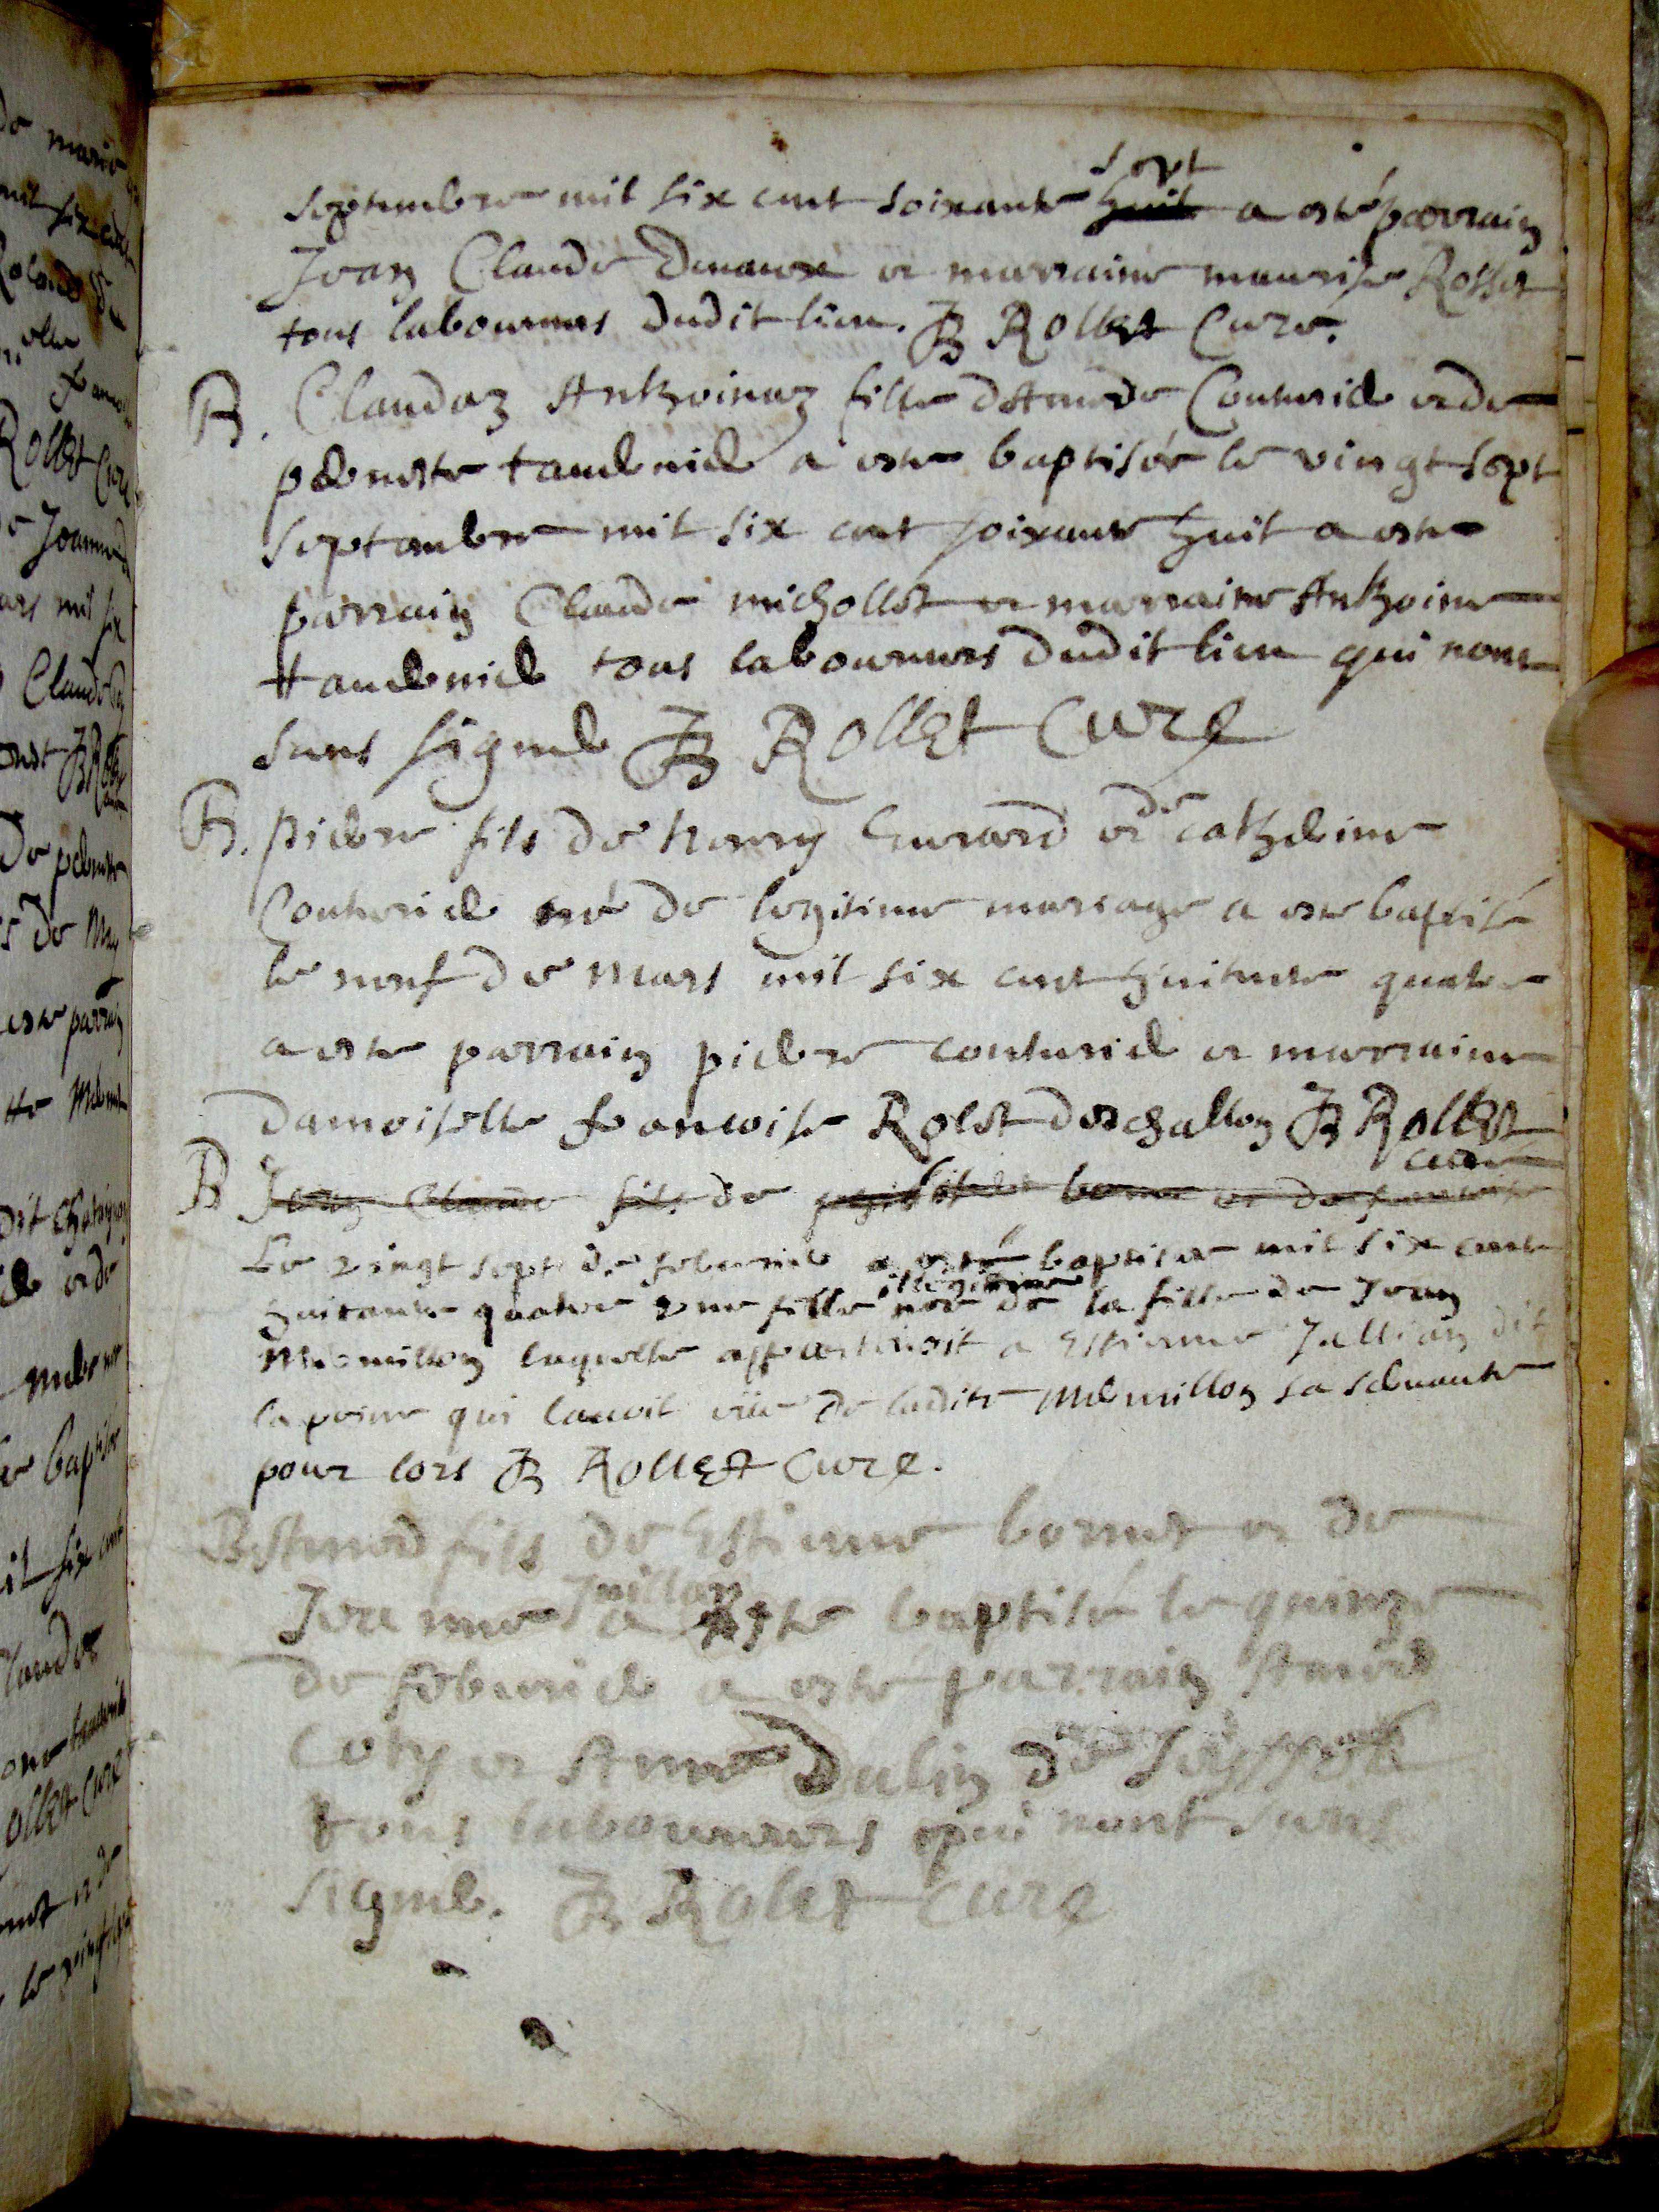 septembre mil six cent soixante huit sept a esté parrain
Jean Claude et marraine maurise Rosset
tous laboureurs dudit lieu. JB Rollet Curé.
B. Claudaz Anthoinaz fille dAmede Couturié et de
pernette tavernié a este baptisée le vingt sept
septembre mil six cent soixante huit a este
parrain Claude michollet et marraine Anthoine
tavernié tous laboureurs dudit lieu qui nont
sceus signer JB Rollet Curé
B. pierre fils de henry Evrard et de catherine
Couturié né de legitime mariage a este baptisé
le neuf de Mars mil six cent huitante quatre
a este parrain pierre couturié et marraine
damoiselle francoise Rolet deschallon JB Rollet
curé
B Jean Claude fils de et de francoise
Le vingt sept de febvrié a esté baptisee mil six cent
huitante quatre une fille illegitime née de la fille de Jean
Mermillon laquelle appartenoit a Estienne Jallian dit
la qui lavoit eüe de ladite Mermillon sa servante
pour lors JB Rollet Curé.
B Amed fils de Estienne bornet et de
Jeanne Juillan a este baptisé le quinze
de febvrié a este parrain Amed
Coty et Anne Dulin de
tous laboureurs qui nont sceus
signer. JB Rolet Curé